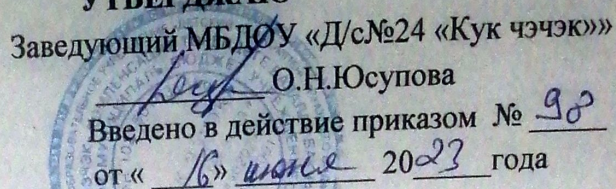 Заведующий МБДОУ «Д/с№24 «Кук чэчэк»»
О.Н.Юсупова
Введено в действие приказом № 98
от « 16 » июня 2023 года